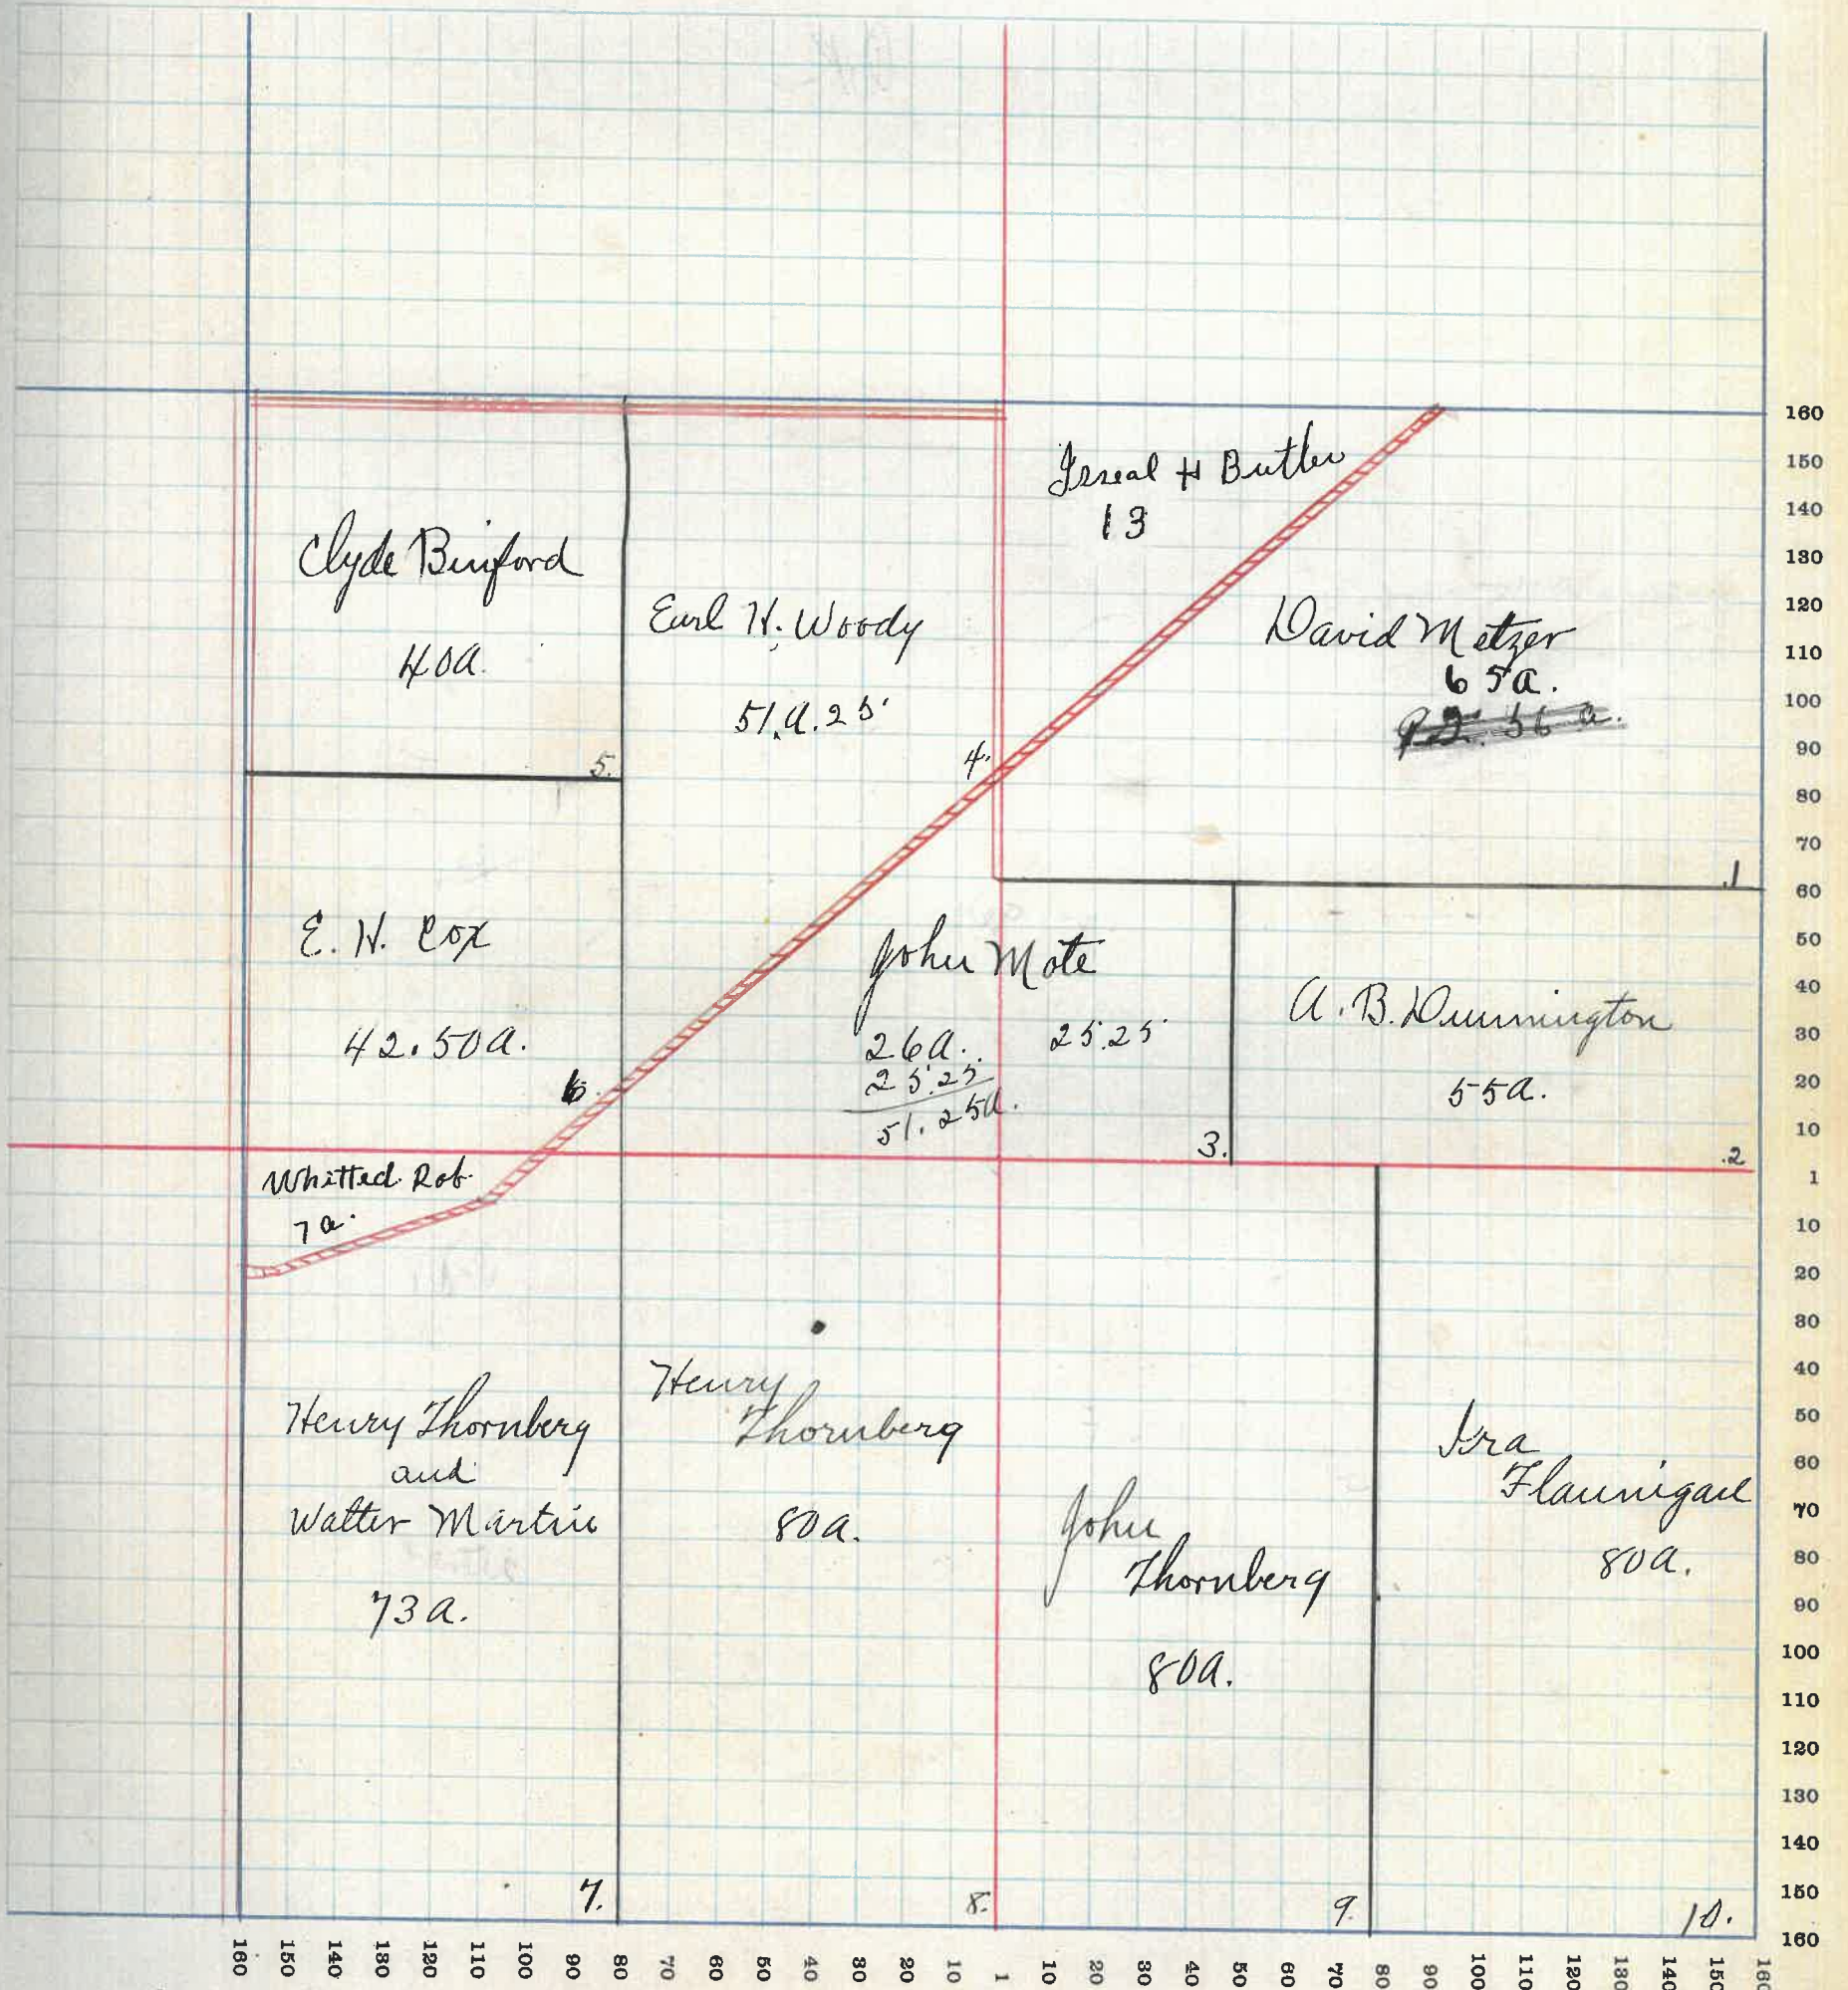 Isreal H Butler
13
Clyde Binford
40a.
Earl H. Woody
51.a.25
David Metzer
65a.
5.
4.
.1
E. H. Cox
42.50a.
6.
John Mote
26a.
25.25
51.25a.
25.25
3.
A. B. Dunnington
55a.
.2
Whitted. Rob.
7a.
Henry Thornberg
and
Walter Martin
73a.
7.
Henry
Thornberg
80a.
8.
John
Thornberg
80a.
9.
Ira
Flannigan
80a.
10.
160
150
140
130
120
110
100
90
80
70
60
50
40
30
20
10
1
10
20
30
40
50
60
70
80
90
100
110
120
130
140
150
160
160 150 140 130 120 110 100 90 80 70 60 50 40 30 20 10 1 10 20 30 40 50 60 70 80 90 100 110 120 130 140 150 160